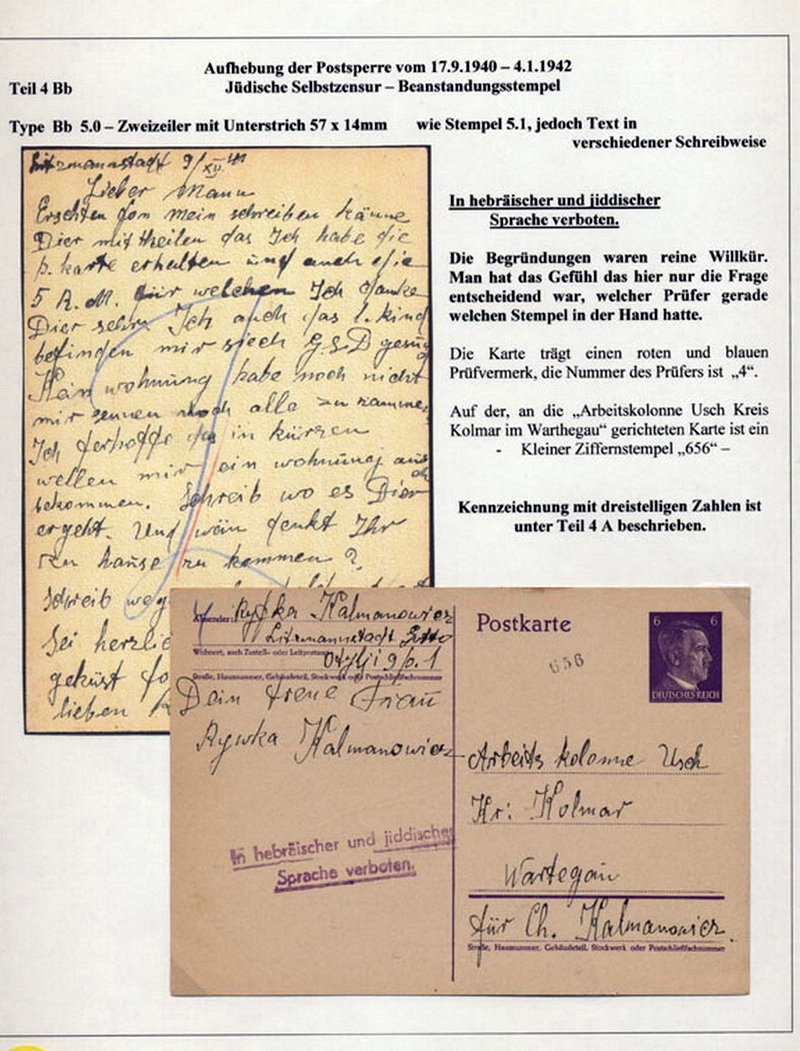 Aufhebung der Postsperre vom 17.9.1940 – 4.1.1942
Teil 4 Bb
Jüdische Selbstzensur – Beanstandungsstempel
Type Bb 5.0 – Zweizeiler mit Unterstrich 57 x 14mm wie Stempel 5.1, jedoch Text in
verschiedener Schreibweise
Litzmannstadt 9/XII 41
Lieber Mann
Ersten fon mein schreiben känne
Dier mittheilen das Ich habe die
p. karte erhalten und auch die
5 R.M. für welchen Ich danke
Dier sehr. Ich auch das l. kind
befinden mir siech G.S.D gesu
Kein wohnung habe noch nicht
mir sennen noch alle zu zamme
Ich ferhoffe in kürzen
wellen mir ein wohnung auch
bekommen. Schreib wo es Dier
ergeht. Und wän denkt Ihr
zu hause zu kommen?
Schreib weg
Sei herzlic
geküst fo
lieben
In hebräischer und jiddischer
Sprache verboten.
Die Begründungen waren reine Willkür.
Man hat das Gefühl das hier nur die Frage
entscheidend war, welcher Prüfer gerade
welchen Stempel in der Hand hatte.
Die Karte trägt einen roten und blauen
Prüfvermerk, die Nummer des Prüfers ist „4“.
Auf der, an die „Arbeitskolonne Usch Kreis
Kolmar im Warthegau“ gerichteten Karte ist ein
- Kleiner Ziffernstempel „656“ –
Kennzeichnung mit dreistelligen Zahlen ist
unter Teil 4 A beschrieben.
Absender: Ryfka Kalmanowicz
Litzmannstadt Getto
Wohnort, auch Zustell- oder Leitpostamt
9/p. 1
Straße, Hausnummer, Gebäudeteil, Stockwerk oder Postschließfachnummer
Dein treue Frau
Rywka Kalmanowicz
In hebräischer und jiddischer
Sprache verboten.
Postkarte
656
6 6
DEUTSCHES REICH
Arbeits kolonne Usch
Kr: Kolmar
Wartegau
für Ch. Kalmanowicz.
Straße, Hausnummer, Gebäudeteil, Stockwerk oder Postschließfachnummer